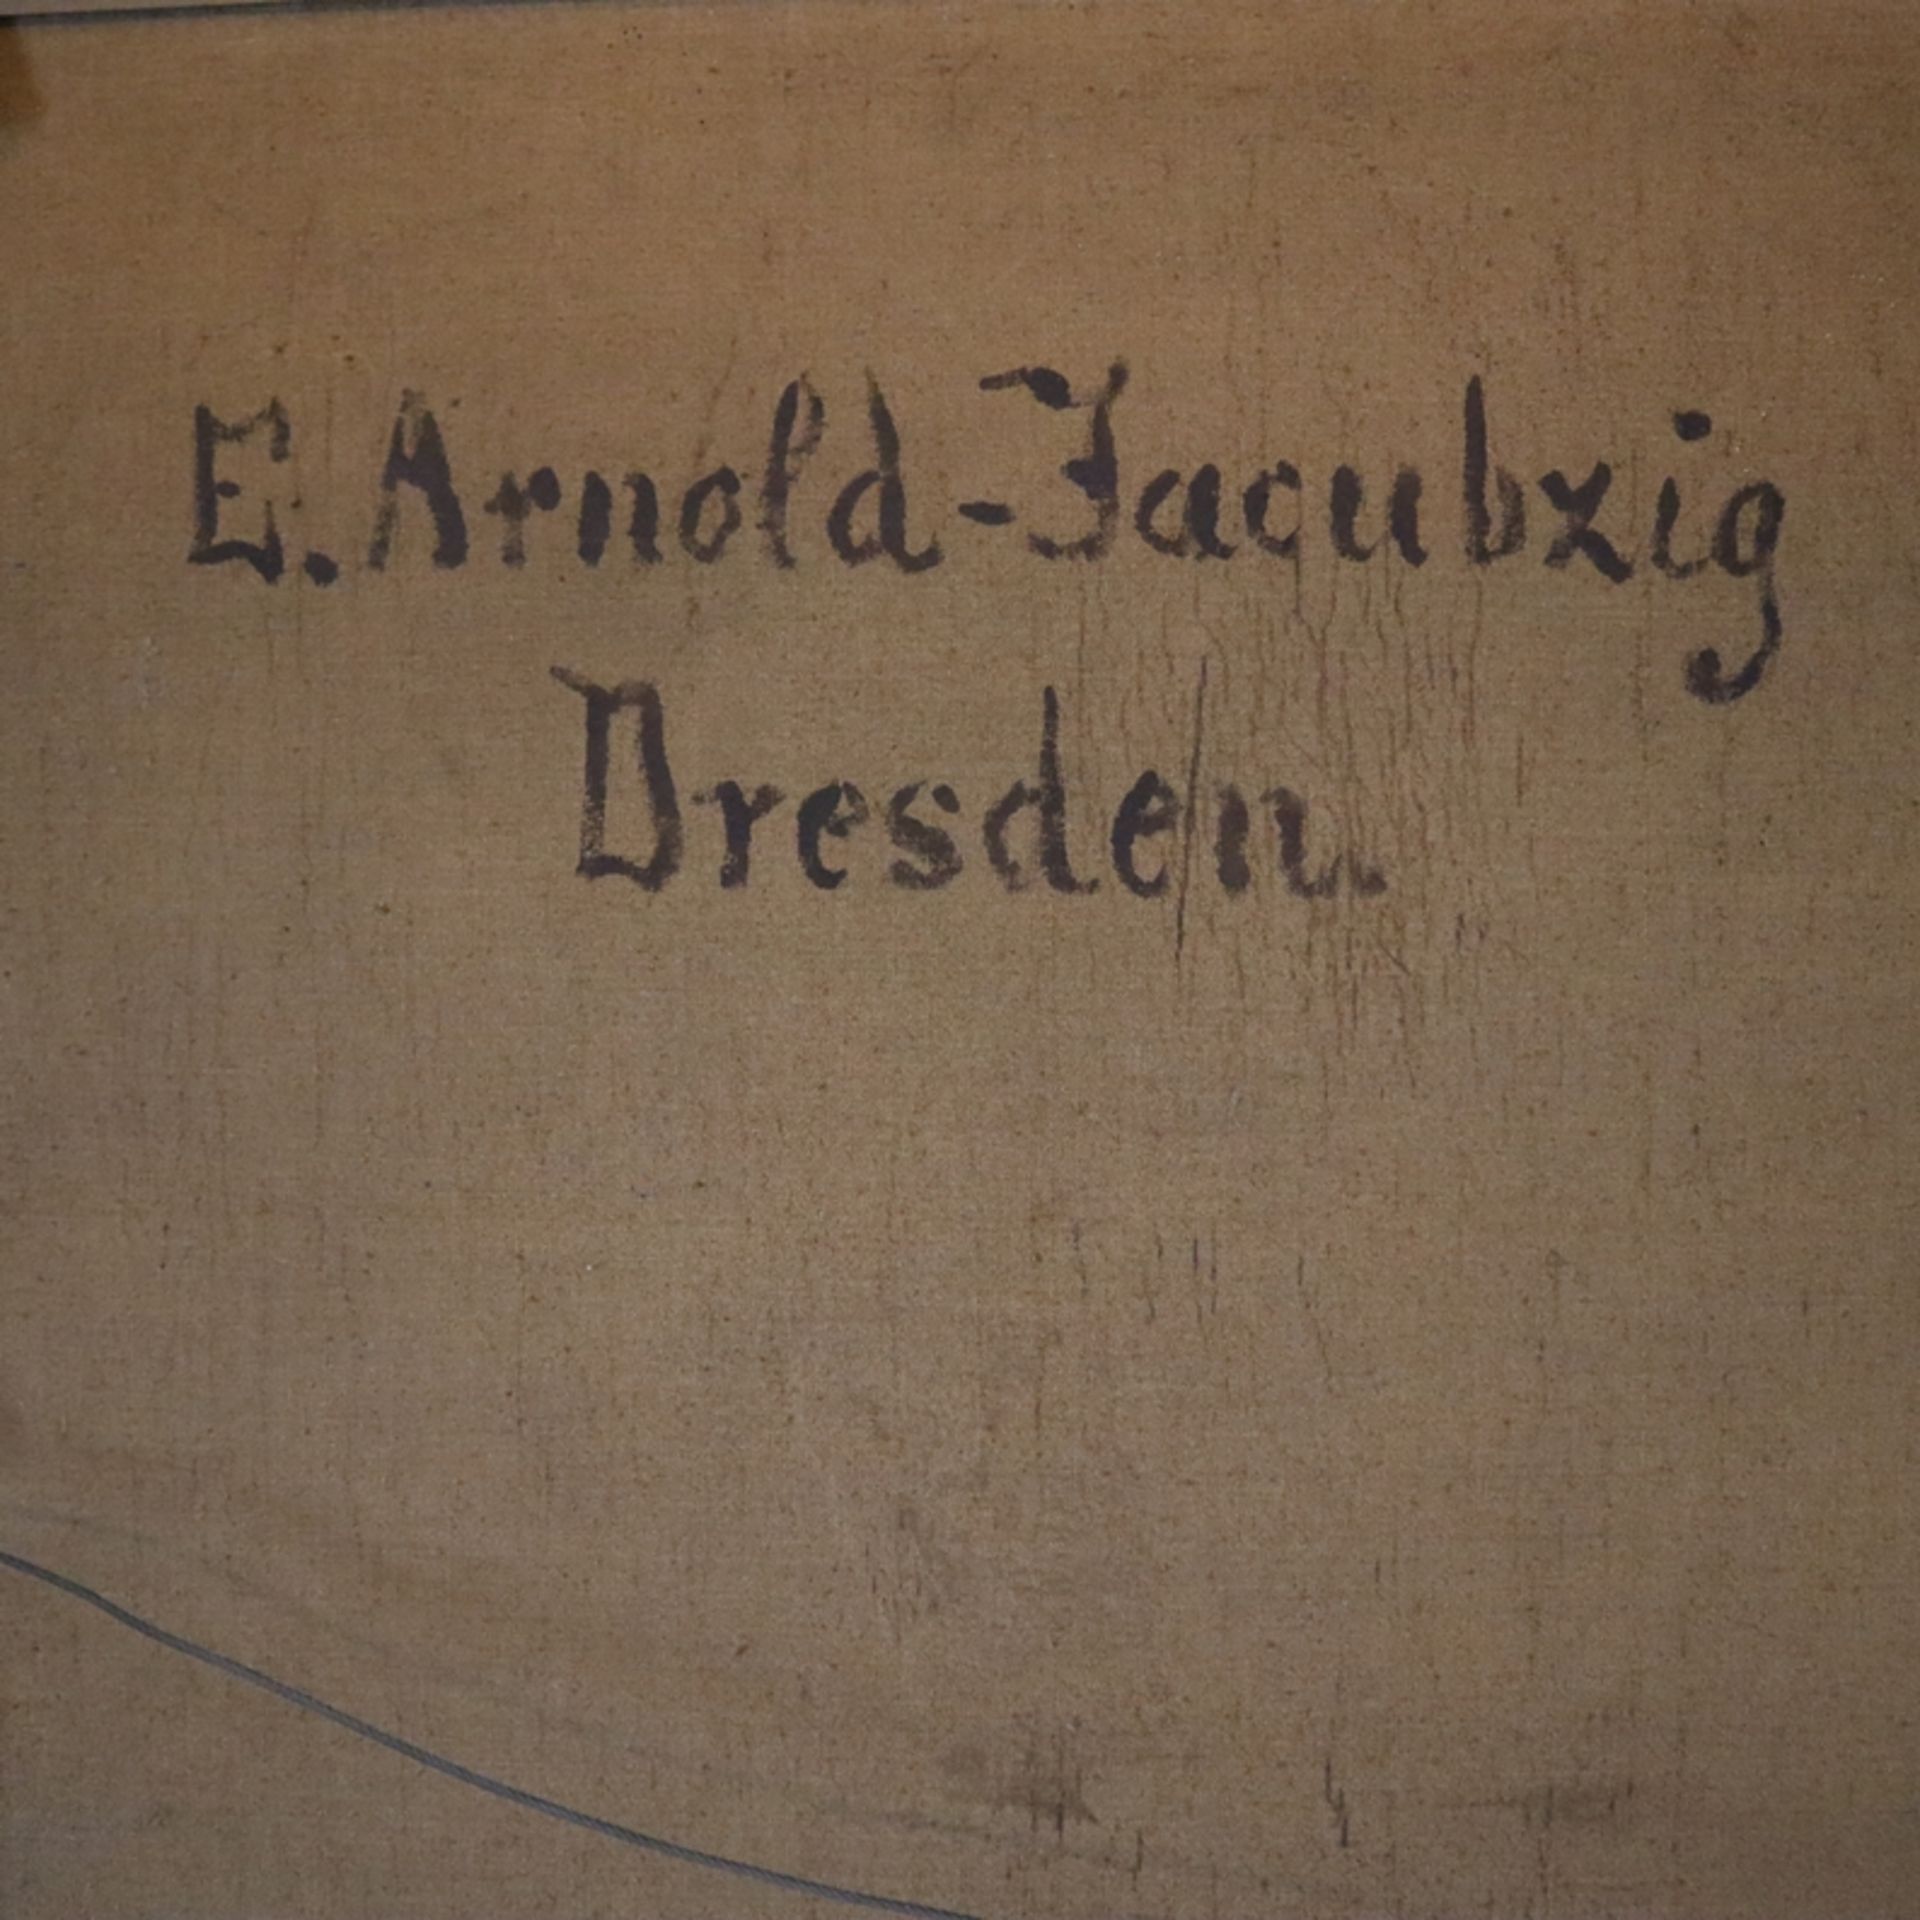 E. Arnold-Jacubzig
Dresden.